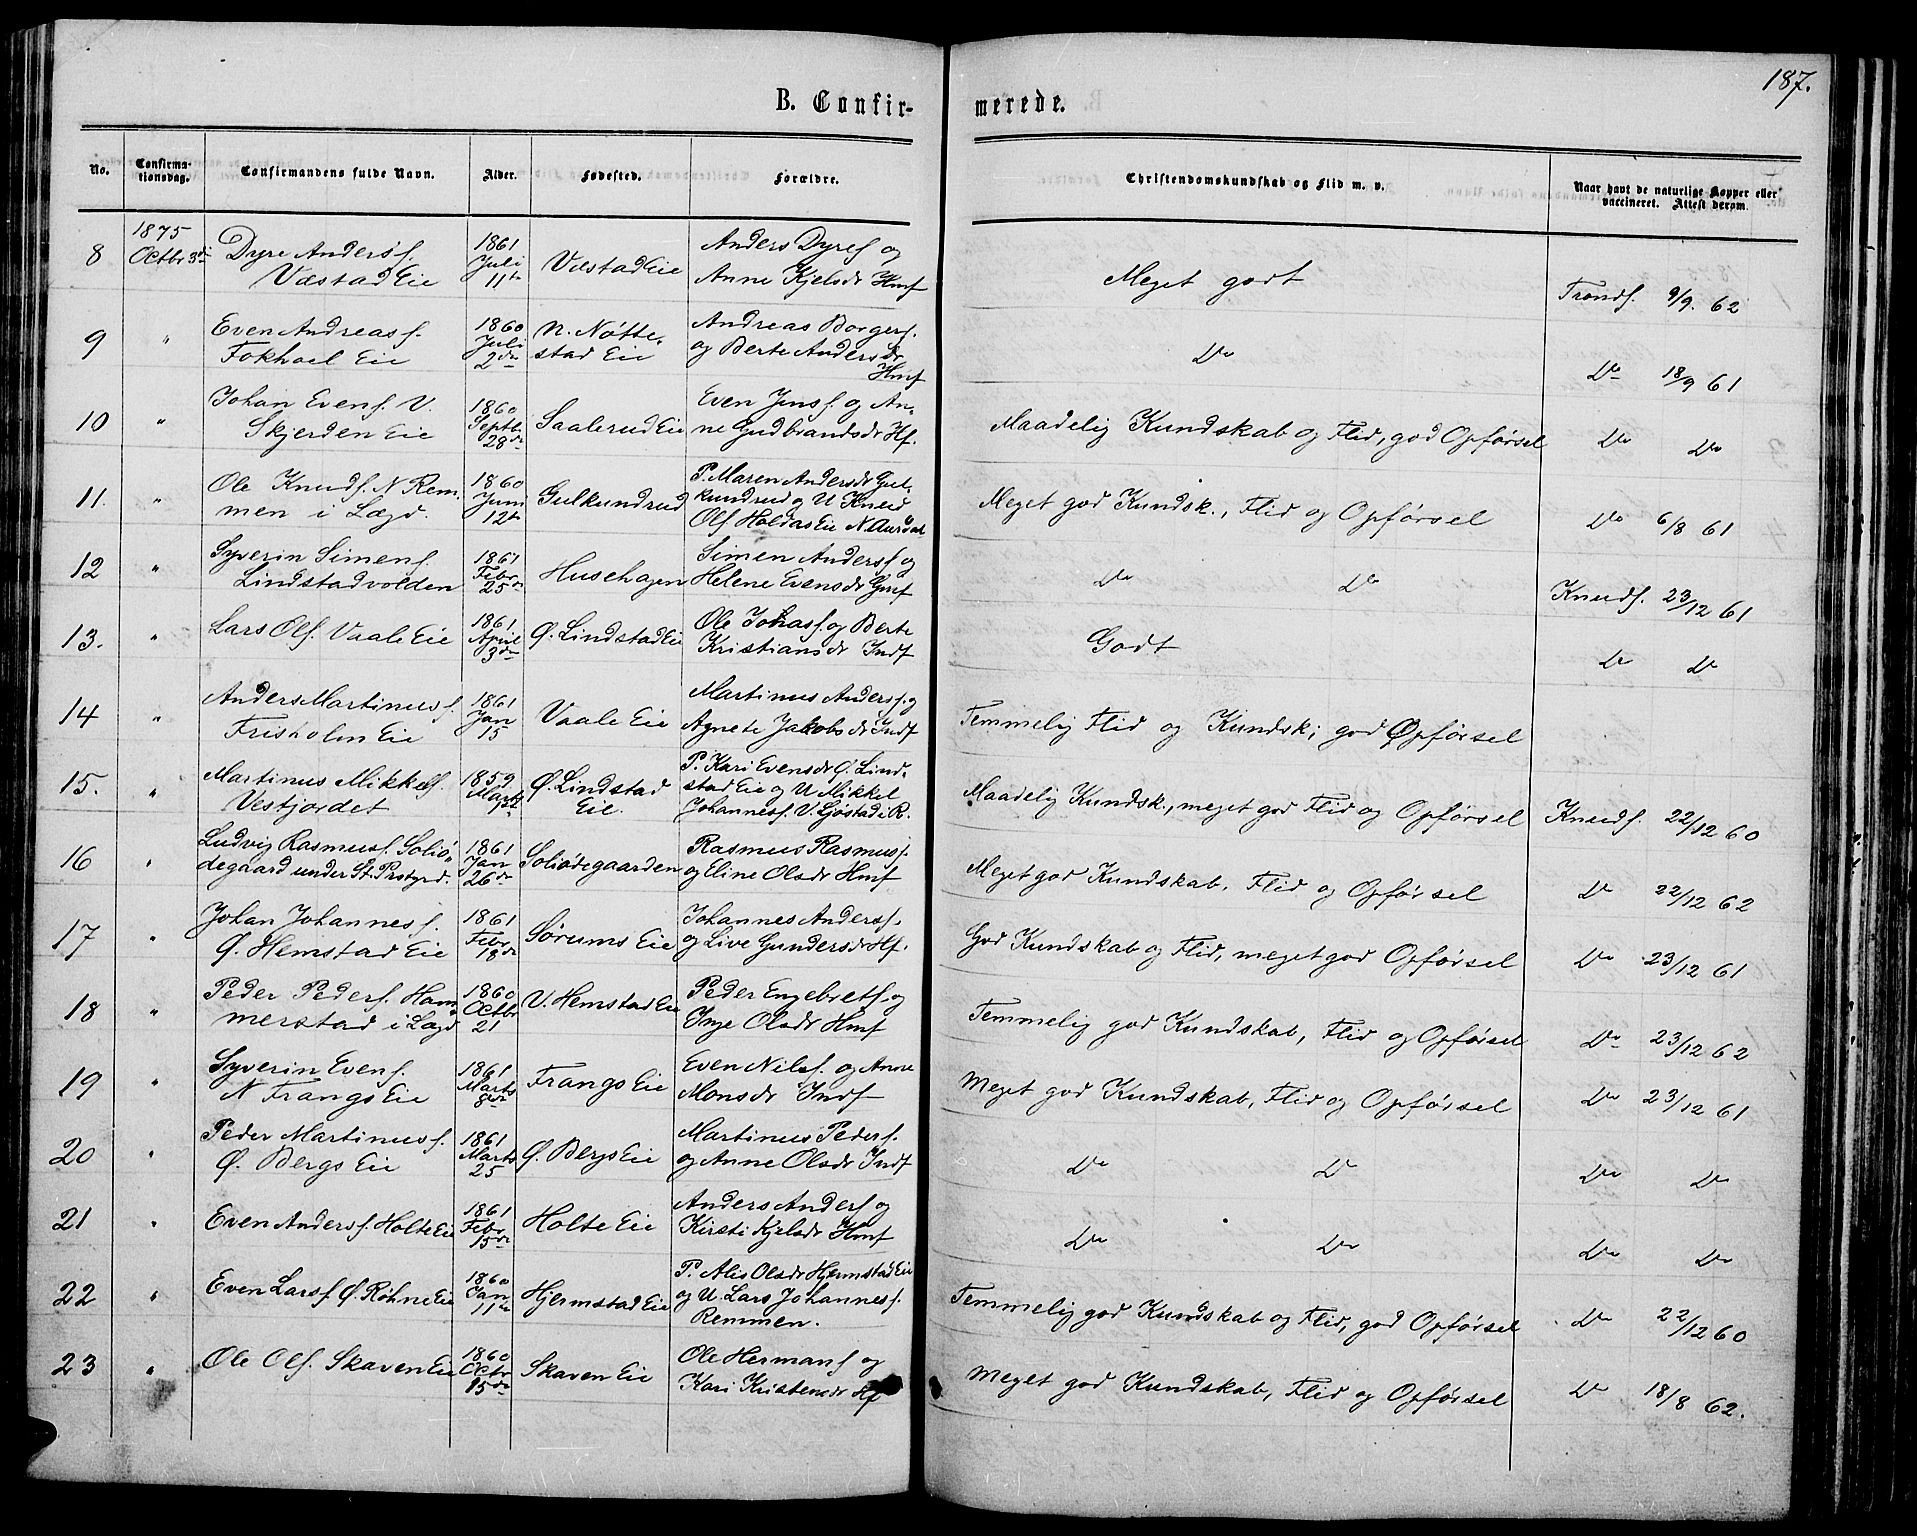 187.
B. Confirmerede.
No. Confirmationsdag. Confirmandens fulde Navn. Alder. Fødested. Forældre. Christendomskundskab og Flid m. v. Naar havt de naturlige Kopper eller vaccineret. Attest derom.
8 1875 Octbr 3di Dyre Andersf. Væstad Eie 1861 Juli 11te Væstad Eie Anders Dyresf og Anne Kjelsdr Hmf Meget godt Trondf. 9/9. 62
9 " Even Andreasf. Fokhoel Eie 1860 Juli 2den N. Nøttestad Eie Andreas Borgersf. og Berte Andersdr Hmf Do Do 18/9 61
10 " Johan Evensf. V. Skjerden Eie 1860 Septb. 28de Saalerud Eie Even Jensf. og Anne Gudbrandsdr Hf. Maadelig Kundskab og Flid, god Opførsel Do Do
11. " Ole Knudsf. N Remmen i Lægd. 1860 Juni 12te Gulkundrud P. Maren Andersdr Gulkundrud og U Knud Olsf Holdas Eie N Aurdal Meget god Kundsk., Flid og Opførsel Do 6/8 61
12 " Syverin Simensf. Lindstadvolden 1861 Febr 25de Husehagen Simen Andersf og Helene Evensdr Gmf Do Do Knudf. 23/12 61
13. " Lars Olsf. Vaale Eie 1861 April 3die Ø. Lindstad Eie Ole Johasf. og Berte Kristiansdr Indf Godt Do Do
14 " Anders Martinusf. Frisholm Eie 1861 Jan 15 Vaale Eie Martinus Andersf. og Agnete Jakobsdr Indf Temmelig Flid og Kundsk; god Opførsel
15. " Martinus Mikkelsf. Vestjordet 1859 Marts Ø. Lindstad Eie. P. Kari Evensdr Ø. Lindstad Eie og U Mikkel Johannesf. V. Ljøstad i R. Maadelig Kundsk., meget god Flid og Opførsel Knudf. 22/12 60
16 " Ludvig Rasmusf. Soliødegaard under St. Prstgrd. 1861 Jan 26de Soliødegaarden Rasmus Rasmusf. og Eline Olsdr Hmf Meget god Kundskab, Flid og Opførsel Do 22/12 62
17 " Johan Johannesf. Ø. Hemstad Eie 1861 Febr 18de Sørums Eie Johannes Andersf. og Live Gundersdr Hf. God Kundskab og Flid, meget god Opførsel Do 23/12 61
18 " Peder Pedersf. Hammerstad i Lægd 1860 Octbr 21 V. Hemstad Eie Peder Engebretsf. og Inge Olsdr Hmf Temmelig god Kundskab, Flid og Opførsel Do 23/12 62
19 " Syverin Evensf. N Frangs Eie 1861 Marts 8de Frangs Eie Even Nilsf. og Anne Monsdr Indf Meget god Kundskab, Flid og Opførsel Do 23/12 61
20 " Peder Martinusf. Ø. Bergs Eie 1861 Marts 25 Ø. Bergs Eie Martinus Pedersf. og Anne Olsdr Indf Do Do Do Do
21 " Even Andersf. Holte Eie 1861 Febr 15de Holte Eie Anders Andersf og Kirsti Kjelsdr Hmf Do Do Do Do
22 " Even Larsf Ø. Røhne Eie 1860 Jan 11te Hjermstad Eie P. Alis Olsdr Hjermstad Eie og U. Lars Johannesf. Remmen. Temmelig god Kundskab og Flid, god Opførsel Do 22/12 60
23 " Ole Olsf. Skaven Eie 1860 Octbr 15de Skaven Eie Ole Hermansf og Kari Kristensdr Hf Meget god Kundskab, Flid og Opførsel Do 18/8 62.